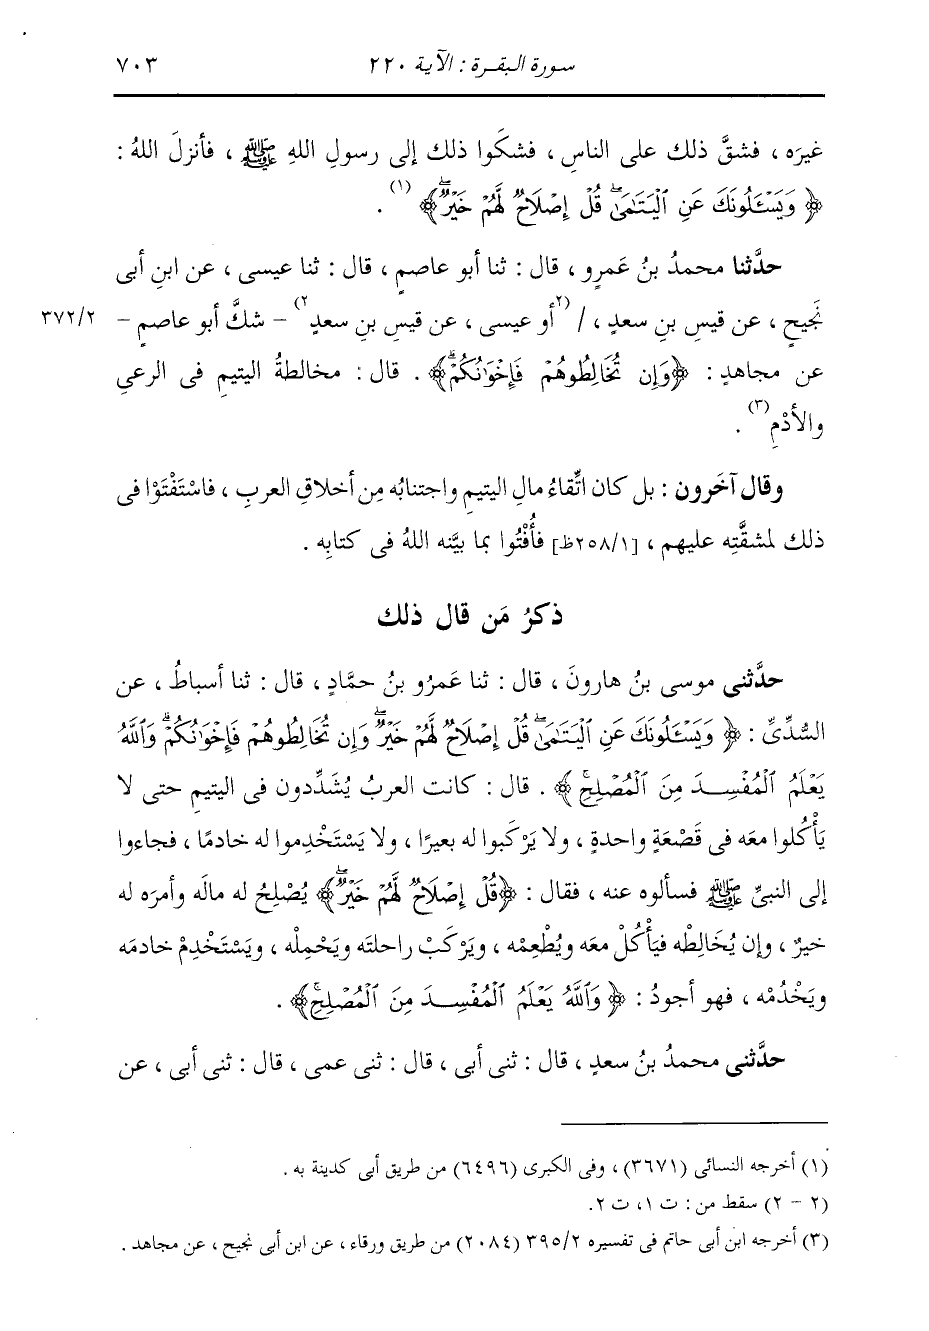 سورة البقرة : الآية ٢٢٠ ٧٠٣
غيرَه ، فشقَّ ذلك على الناسِ ، فشكَوا ذلك إلى رسولِ اللهِ ﷺ ، فأنزلَ اللهُ :
﴿ وَيَسْـَٔلُونَكَ عَنِ ٱلْيَتَـٰمَىٰۖ قُلْ إِصْلَاحٌ لَّهُمْ خَيْرٌۖ ﴾ (١) .
حدَّثنا محمدُ بنُ عَمرٍو ، قال : ثنا أبو عاصمٍ ، قال : ثنا عيسى ، عن ابنِ أبى
نَجيحٍ ، عن قيسِ بنِ سعدٍ ، / (٢أو عيسى ، عن قيسِ بنِ سعدٍ٢) – شكَّ أبو عاصمٍ – ٣٧٢/٢
عن مجاهدٍ : ﴿وَإِن تُخَالِطُوهُمْ فَإِخْوَٰنُكُمْۚ﴾ . قال : مخالطةُ اليتيمِ فى الرعي
والأُدْمِ (٣) .
وقال آخَرون : بل كان اتِّقاءُ مالِ اليتيمِ واجتنابُه مِن أخلاقِ العربِ ، فاسْتَفْتَوْا فى
ذلك لمشقَّتِه عليهم ، [٢٥٨/١ظ] فأُفْتُوا بما بيَّنه اللهُ فى كتابِه .
ذكرُ مَن قال ذلك
حدَّثنى موسى بنُ هارونَ ، قال : ثنا عَمرُو بنُ حمَّادٍ ، قال : ثنا أسباطُ ، عن
السُّدِّىِّ : ﴿ وَيَسْـَٔلُونَكَ عَنِ ٱلْيَتَـٰمَىٰۖ قُلْ إِصْلَاحٌ لَّهُمْ خَيْرٌۖ وَإِن تُخَالِطُوهُمْ فَإِخْوَٰنُكُمْۚ وَٱللَّهُ
يَعْلَمُ ٱلْمُفْسِدَ مِنَ ٱلْمُصْلِحِۚ ﴾ . قال : كانت العربُ يُشَدِّدون فى اليتيمِ حتى لا
يَأْكُلوا معَه فى قَصْعَةٍ واحدةٍ ، ولا يَرْكَبوا له بعيرًا ، ولا يَسْتَخْدِموا له خادمًا ، فجاءوا
إلى النبىِّ ﷺ فسألوه عنه ، فقال : ﴿قُلْ إِصْلَاحٌ لَّهُمْ خَيْرٌۖ﴾ يُصْلِحُ له مالَه وأمرَه له
خيرٌ ، وإن يُخالِطْه فيَأْكُلْ معَه ويُطْعِمْه ، ويَرْكَبْ راحلتَه ويَحْمِلْه ، ويَسْتَخْدِمْ خادمَه
ويَخْدُمْه ، فهو أجودُ : ﴿ وَٱللَّهُ يَعْلَمُ ٱلْمُفْسِدَ مِنَ ٱلْمُصْلِحِۚ﴾ .
حدَّثنى محمدُ بنُ سعدٍ ، قال : ثنى أبى ، قال : ثنى عمى ، قال : ثنى أبى ، عن
(١) أخرجه النسائى (٣٦٧١) ، وفى الكبرى (٦٤٩٦) من طريق أبى كدينة به .
(٢ - ٢) سقط من : ت ١، ت ٢.
(٣) أخرجه ابن أبى حاتم فى تفسيره ٣٩٥/٢ (٢٠٨٤) من طريق ورقاء ، عن ابن أبى نجيح ، عن مجاهد .